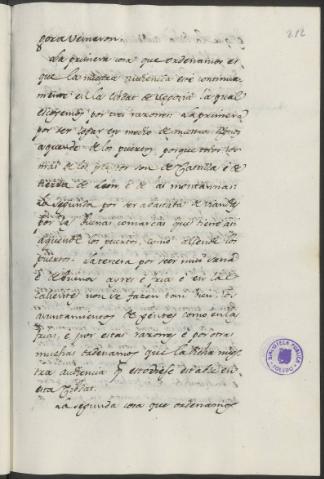 212
gora vernaron
La primera cosa que ordenamos es
que la nuestra audiencia esté continua
mente en la Cibdat de Segovia la qual
escojemos por tres razones la primera
por ser logar en medio de nuestros Regnos
aquende de los puertos porque todos los
mas de los pleytos son de Castilla é de
tierra de Leon é de las montannas
la segunda por ser abastada de viandas
por las buenas comarcas que tiene asi
aquende los puertos, como allende los
puertos. la tercera por ser muy sana
é de buenos ayres é fria é en la
caliente non se fazen tan bien los
ayuntamientos de gentes como en las
frias, é por estas razones é por otras
muchas ordenamos que la dicha nues
tra audiencia estoviese estable en
esta Cibdat.
La segunda cosa que ordenamos
BIBLIOTECA PUBLICA
TOLEDO